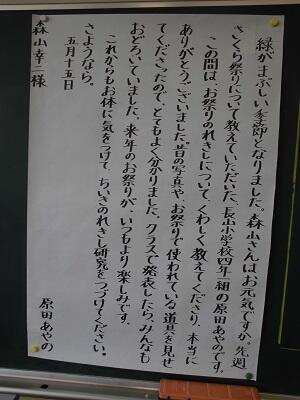 緑がまぶしい季節となりました。森山さんはお元気ですか。先週
さくら祭りについて教えていただいた、長山小学校四年一組の原田あやのです。
この間は、お祭りのれきしについてくわしく教えてくださり、本当に
ありがとうございました。昔の写真や、お祭りで使われている道具を見せ
てくださったので、とてもよく分かりました。クラスで発表したら、みんなも
おどろいていました。来年のお祭りが、いつもより楽しみです。
これからもお体に気をつけて、ちいきのれきし研究をつづけてください。
さようなら。
五月十五日
原田あやの
森山幸二様